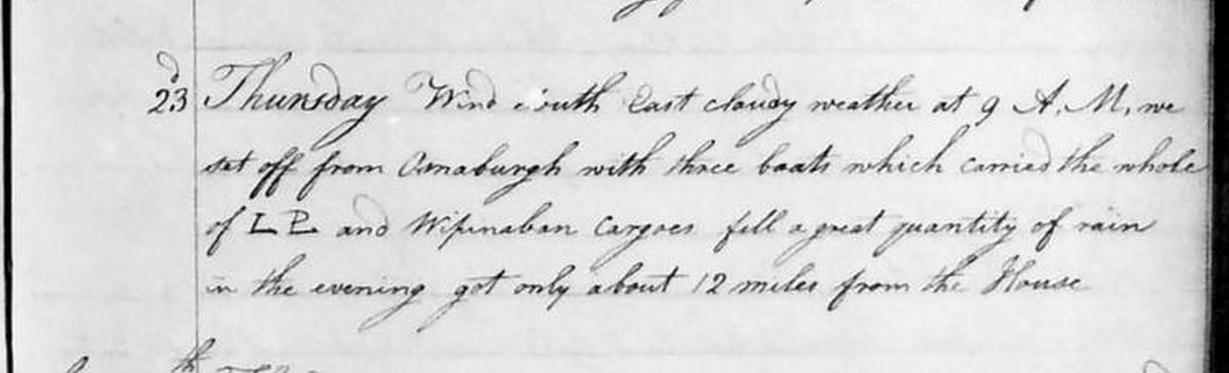 23d Thursday Wind South East cloudy weather at 9 A.M, we
set off from Osnaburgh with three boats which carried the whole
of L P and Wipinaban Cargoes fell a great quantity of rain
in the evening got only about 12 miles from the House